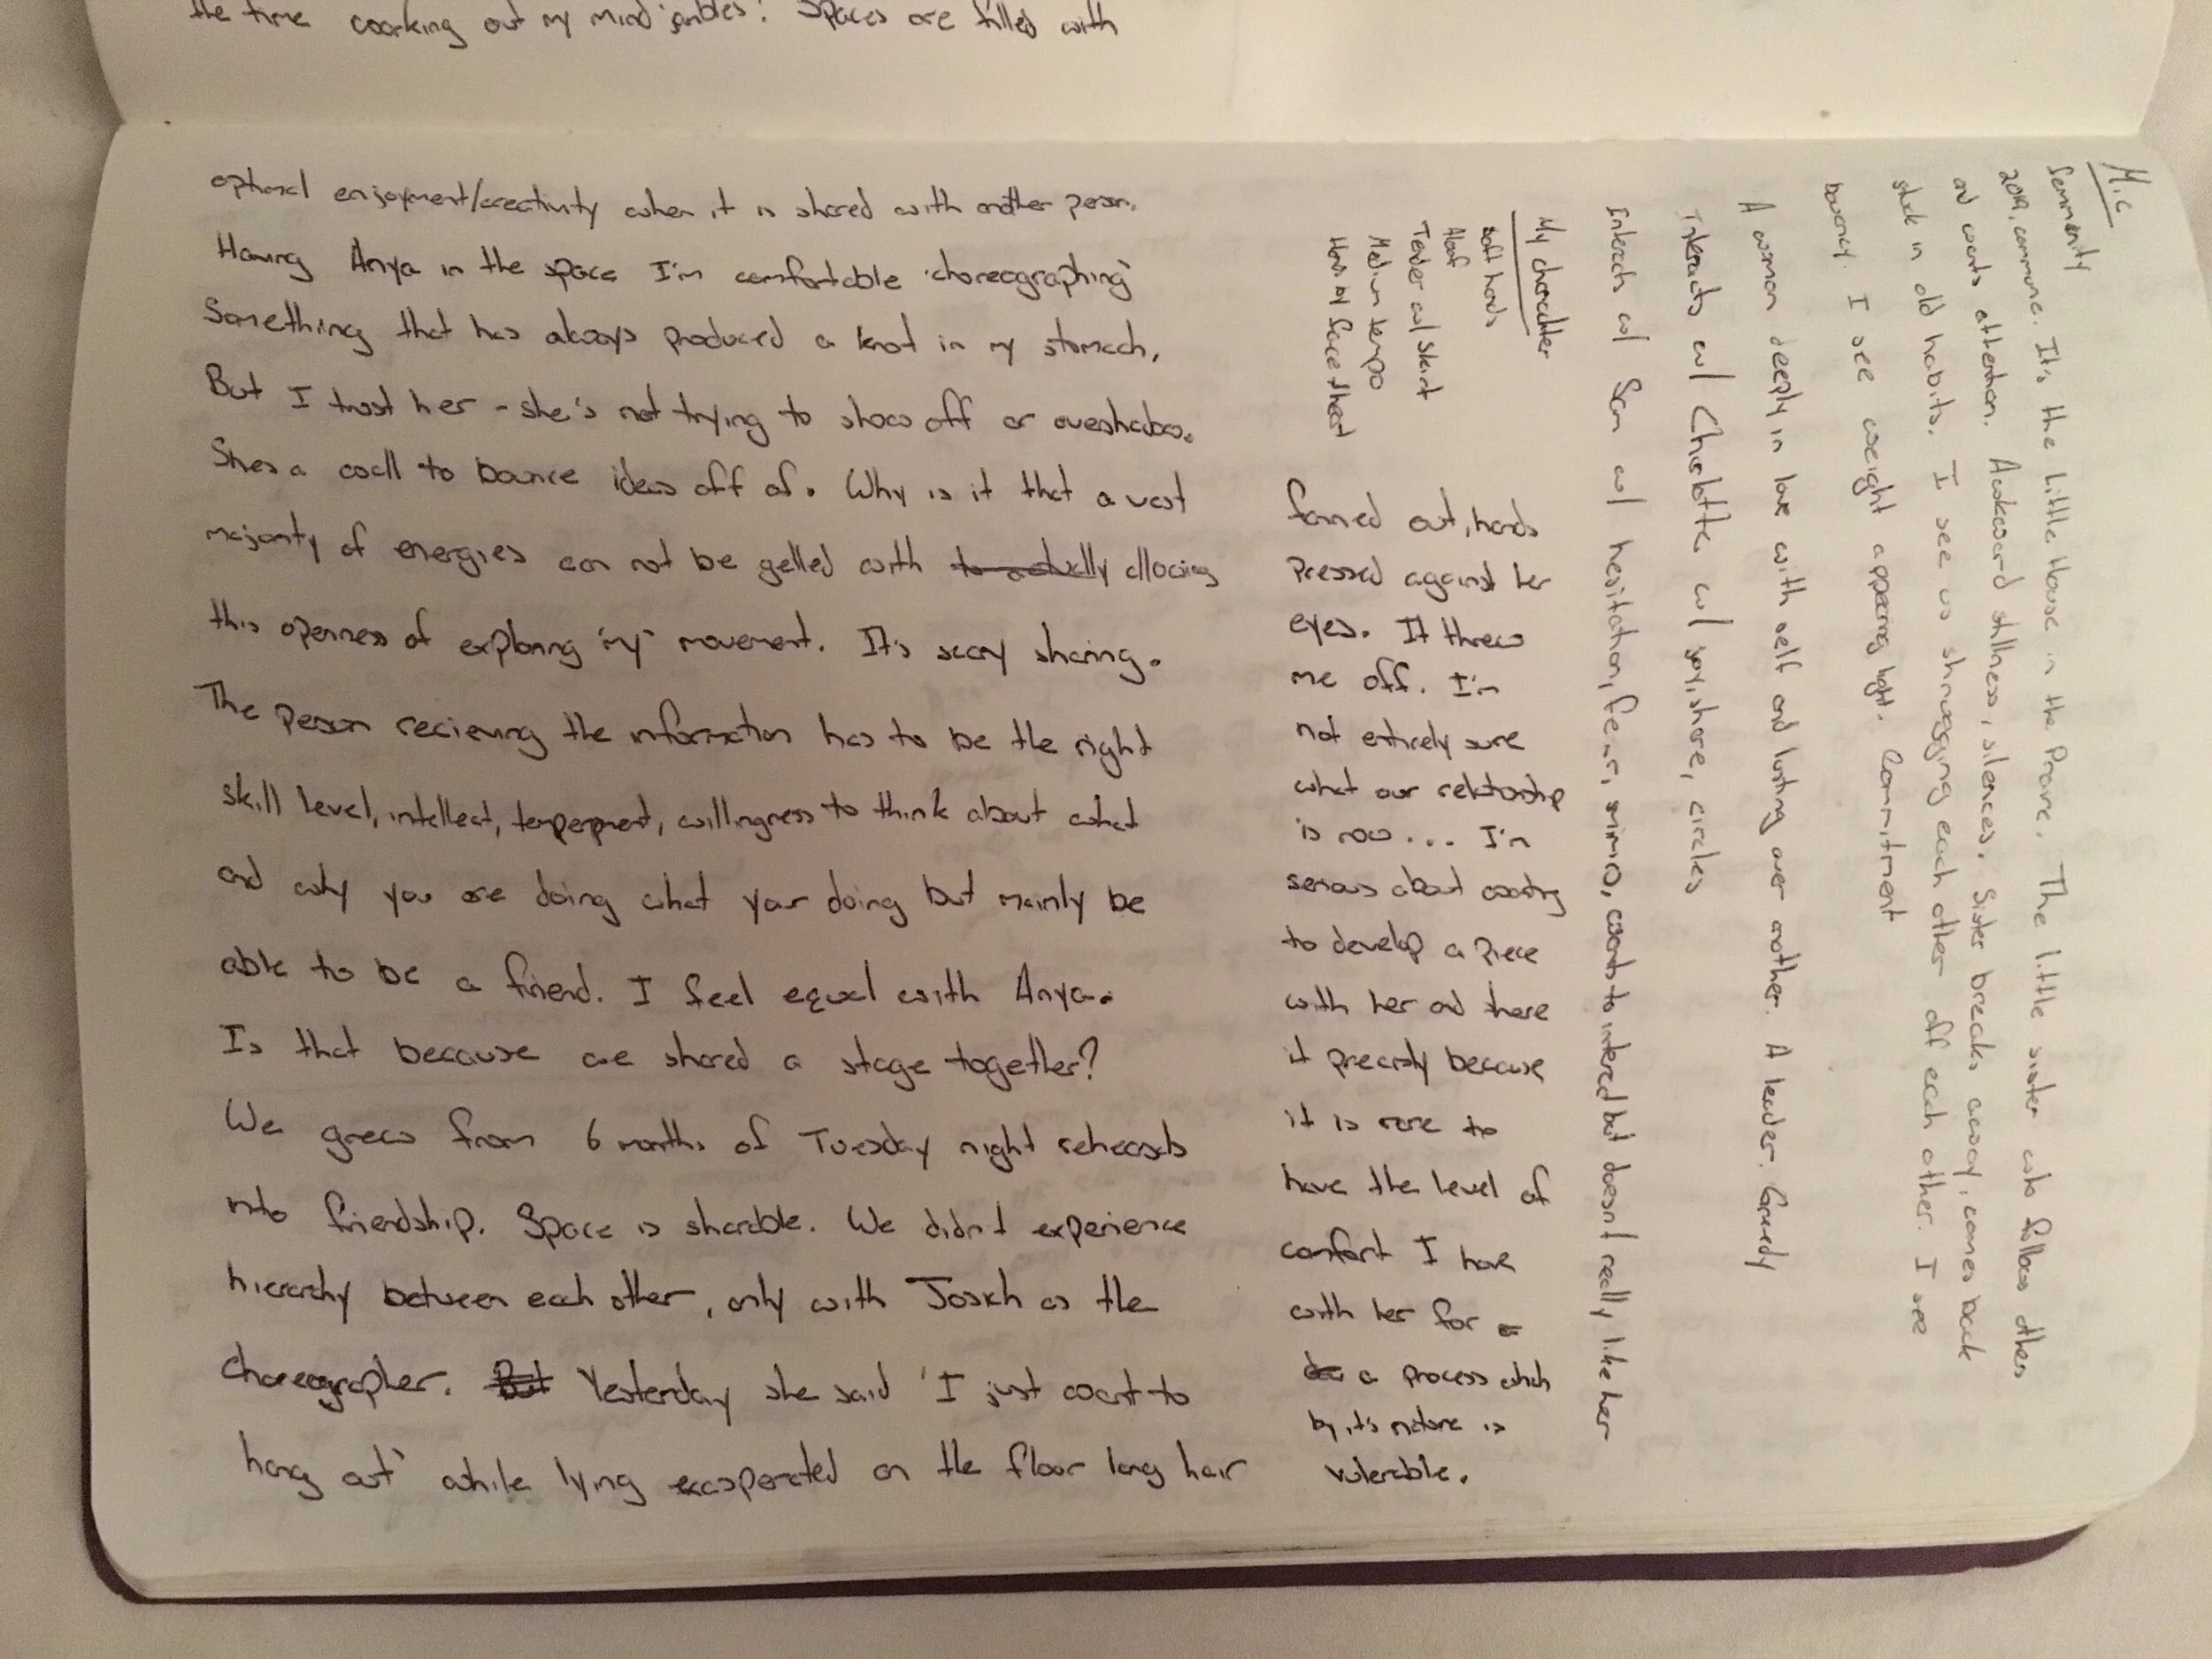 the time working out my mind jumbles! Spaces are filled with
optimal enjoyment/creativity when it is shared with another person.
Having Anya in the space I'm comfortable 'choreographing'
Something that has always produced a knot in my stomach,
But I trust her - she's not trying to show off or
Shes a wall to bounce ideas off of. Why is it that a vast
majority of energies can not be gelled with to actually allowing
this openness of exploring 'my' movement. It's scary sharing.
The person recieving the information has to be the right
skill level, intellect, willingness to think about what
and why you are doing what your doing but mainly be
able to be a friend. I feel equal with Anya.
Is that because we shared a stage together?
We grew from 6 months of Tuesday night rehearsals
into friendship. Space is sharable. We didn't experience
hierarchy between each other, only with as the
choreographer. But Yesterday she said 'I just want to
hang out' while lying exasperated on the floor long hair
fanned out, hands
pressed against her
eyes. It threw
me off. I'm
not entirely sure
what our relationship
is now... I'm
serious about wanting
to develop a piece
with her and there
it precisely because
it is rare to
have the level of
comfort I have
with her for a
a process which
by it's nature is
vulerable.
M.C
Femminity
2019, commune. It's the Little House in the Prarie. The little sister who follows others
and wants attention. Awkward stillness, silences. Sister breaks away, comes back
stuck in old habits. I see us shrugging each other off each other. I see
bouancy. I see weight appearing light. Commitment
A woman deeply in love with self and lusting over another. A leader. Greedy
Interacts w/ Charlotte w/ joy, share, circles
Interacts w/ Sam w/ hesitation, fear, mimic, wants to interact but doesn't really like her
My charachter
soft hands
Aloof
Tender w/ skirt
Medium tempo
Hands by face